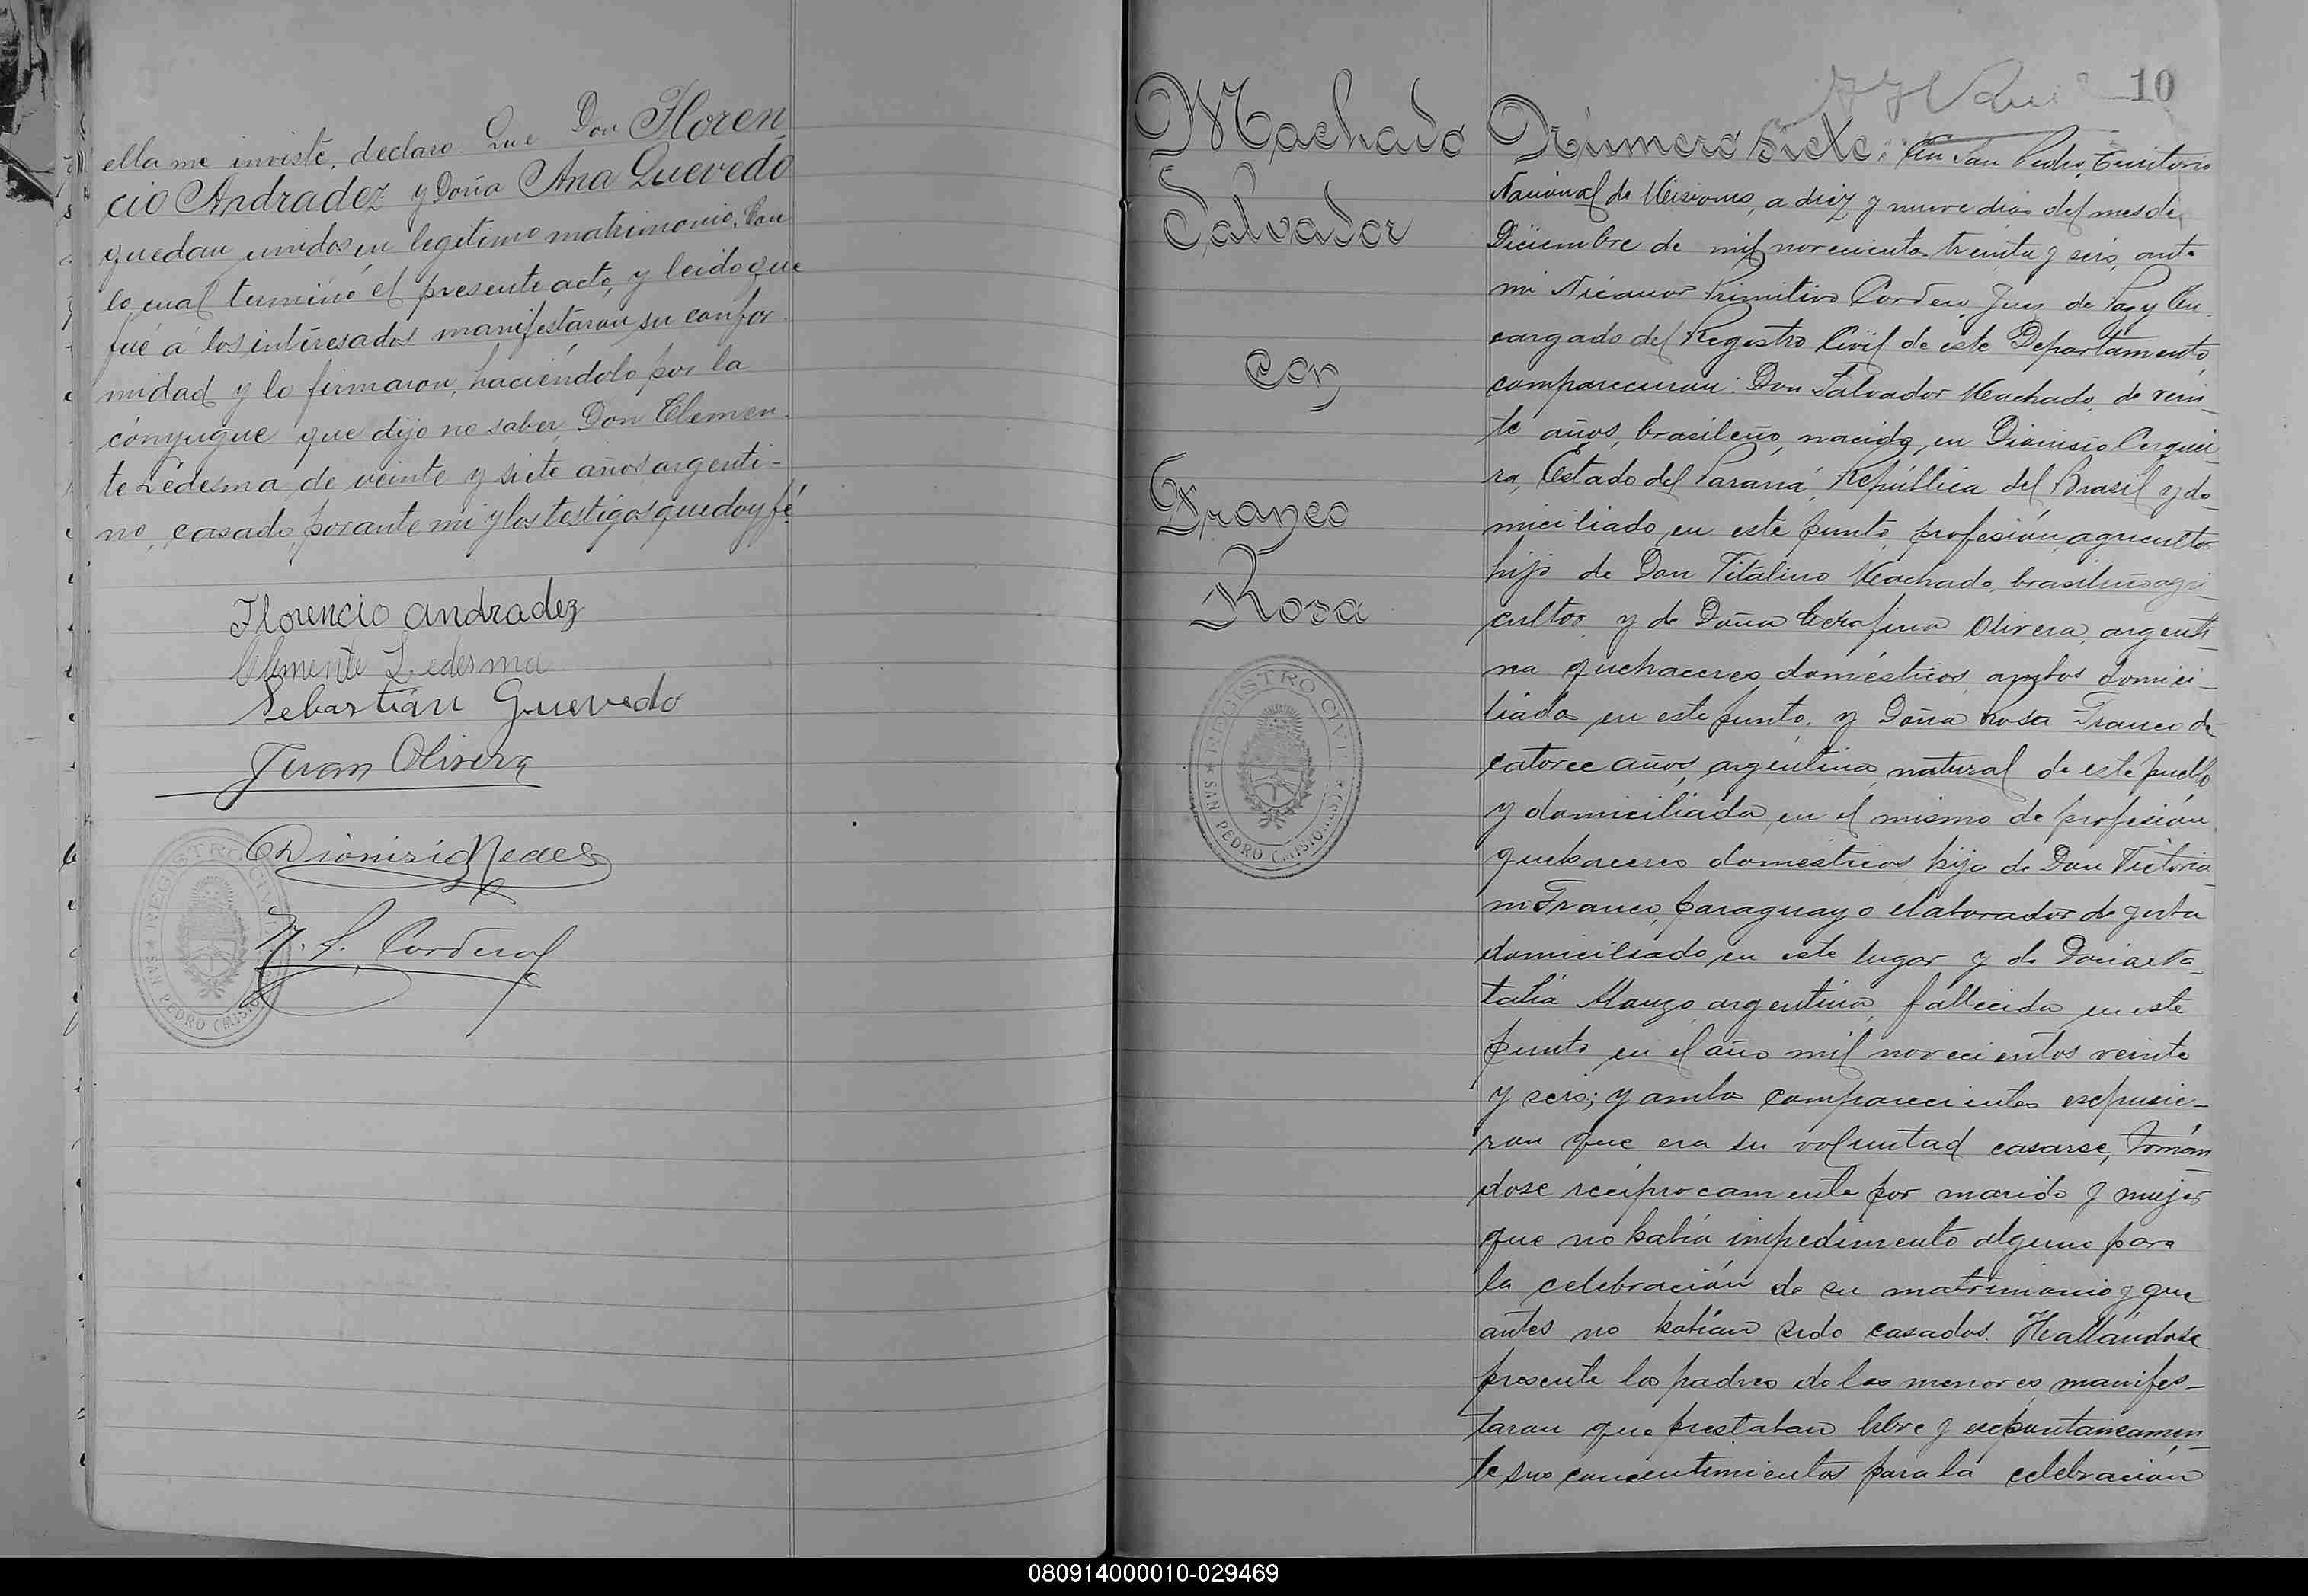 ella me inviste, declaro: Que Don Floren
cio Andradez y Doña Ana Quevedo
quedan unidos en legítimo matrimonio. Con
lo cual terminó el presente acto, y leido que
fué á los interesados manifestaron su confor-
midad y lo firmaron, haciéndolo por la
cónyugue que dijo no saber, Don Clemen-
te Ledesma de veinte y siete años, argenti-
no, casado, por ante mi y los testigos que doy fé.
Florencio Andradez
Clemente Ledesma
Sebastián Quevedo
Juan Olivera
Dionisio
N. P. Cordero
REGISTRO CIVIL
SAN PEDRO (MISIONES)
10
Machado
Salvador
con
Franco
Rosa
REGISTRO CIVIL
SAN PEDRO (MISIONES)
Número Siete: En San Pedro, Territorio
Nacional de Misiones, a diez y nueve dias del mes de
Diciembre de mil novecientos treinta y seis, ante
mi Nicanor Primitivo Cordero, Juez de Paz y En-
cargado del Registro Civil de este Departamento,
comparecieron: Don Salvador Machado, de vein-
te años, brasileño, nacido en Dionisio Cerquei-
ra, Estado del Paraná, República del Brasil y do-
miciliado en este punto, profesión agricultor
hijo de Don Vitalino Machado, brasileño agri-
cultor y de Doña Serafina Olivera, argenti-
na quehaceres domésticos ambos domici-
liados en este punto, y Doña Rosa Franco de
catorce años, argentina, natural de este pueblo
y domiciliada en el mismo de profesión
quehaceres domésticos hija de Don Victoria-
no Franco, paraguayo elaborador de yerba
domiciliado en este lugar y de Doña
argentina, fallecida en este
punto en el año mil novecientos veinte
y seis; y ambos comparecientes expusie-
ron que era su voluntad casarse, tomán
dose recíprocamente por marido y mujer
que no había impedimento alguno para
la celebración de su matrimonio y que
antes no habían sido casados. Hallándose
presente los padres de los menores manifes-
taron que prestaban libre y expontaneamen-
te sus concentimientos para la celebración
080914000010-029469